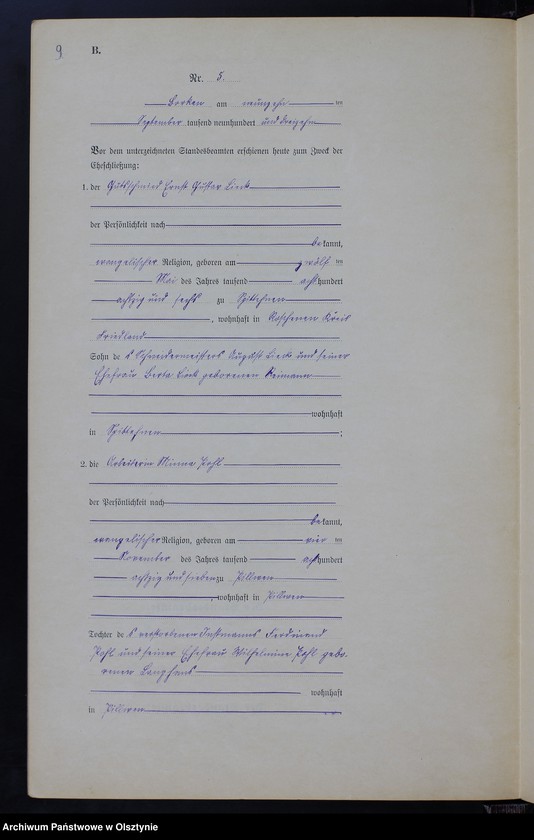 9
B.
Nr. 5.
Borken am neunzehn ten
September tausend neunhundert und dreizehn
Vor dem unterzeichneten Standesbeamten erschienen heute zum Zweck der
Eheschließung:
1. der Gutsschmied Ernst Gustav Linck
der Persönlichkeit nach
bekannt,
evangelischer Religion, geboren am zwölf ten
Mai des Jahres tausend achthundert
achtzig und sechs zu Spittehnen
, wohnhaft in Roschenen Kreis
Friedland
Sohn des Schneidermeisters August Linck und seiner
Ehefrau Berta Linck geborenen Reimann
wohnhaft
in Spittehnen ;
2. die Arbeiterin Minna Pohl
der Persönlichkeit nach
bekannt,
evangelischer Religion, geboren am vier ten
November des Jahres tausend achthundert
achtzig und sieben zu Pillwen
, wohnhaft in Pillwen
Tochter des verstorbenen Instmanns Ferdinand
Pohl und seiner Ehefrau Wilhelmine Pohl gebo-
renen
wohnhaft
in Pillwen
Archiwum Państwowe w Olsztynie